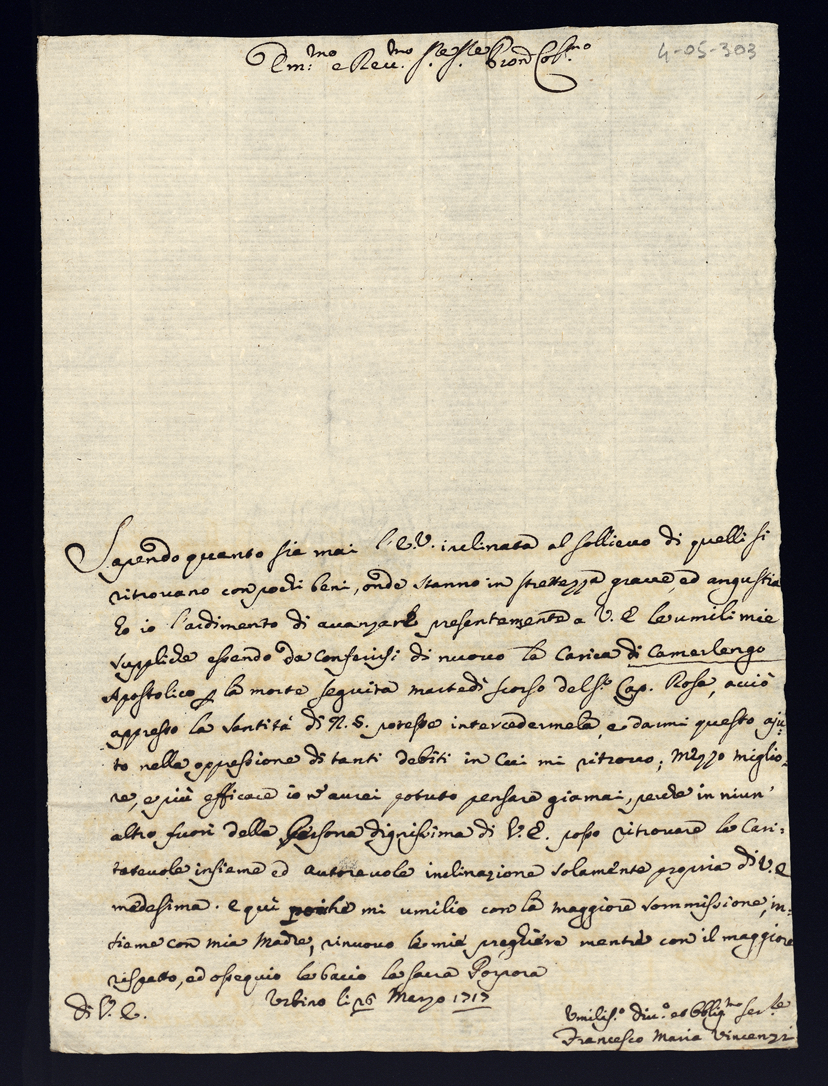 4-05-303
Em.mo e Rev.mo S.re S.re Pron Col.mo
Sapendo quanto sia mai l'E.V. inclinata al sollievo di quelli si
ritrovano con pochi beni, onde stanno in strettezza grave, ed angustia
ho io l'ardimento di avanzare presentemente a V. E le umili mie
suppliche essendo da conferirsi di nuovo la carica di Camerlengo
Apostolico p la morte seguita martedì scorso del S.r Cap. Rosa, acciò
appresso la Santità di N. S. potesse intercedermela, e darmi questo aju-
to nella oppressione di tanti debiti in cui mi ritrovo; Mezzo miglio-
re, e più efficace io n' aurei potuto pensare giamai, perche in niun'
altro fuori della Persona dignissima di V. E. posso ritrovare la Cari-
tatevole insieme ed autorevole inclinazione solamente propria di V. E
medesima. e quì poiche mi umilio con la maggiore sommissione, in-
sieme con mia Madre, rinuovo le mie preghiere mentre con il maggiore
rispetto, ed ossequio le bacio la sacra Porpora
di V. E. Urbino li 26 Marzo 1717
Umiliss.o Div.o ed Obblig.mo Ser.re
Francesco Maria Vincenzi